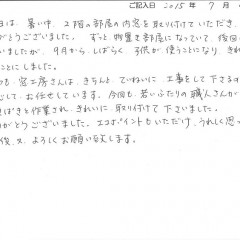 ご記入日 2015 年 7 月
日は、暑い中、2階の部屋の内窓を取り付けていただき、
がとうございました。ずっと物置き部屋になっていて、後回
いましたが、9月から、しばらく、子供が使うことになり、きれ
ことにしました。
も、窓工房さんは、きちんと、ていねいに、工事をして下さるの
して、お任せしています。今回も、若いふたりの職人さんが
ぱきと作業され、きれいに、取り付けて下さいました。
がとうございました。エコポイントもいただけ、うれしく思っ
後、又、よろしくお願い致します。